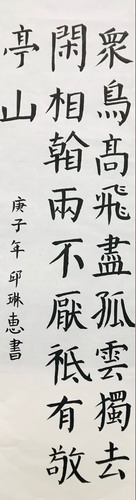 衆鳥髙飛盡孤雲獨去
閑相翰兩不厭袛有敬
亭山
庚子年邱琳惠書